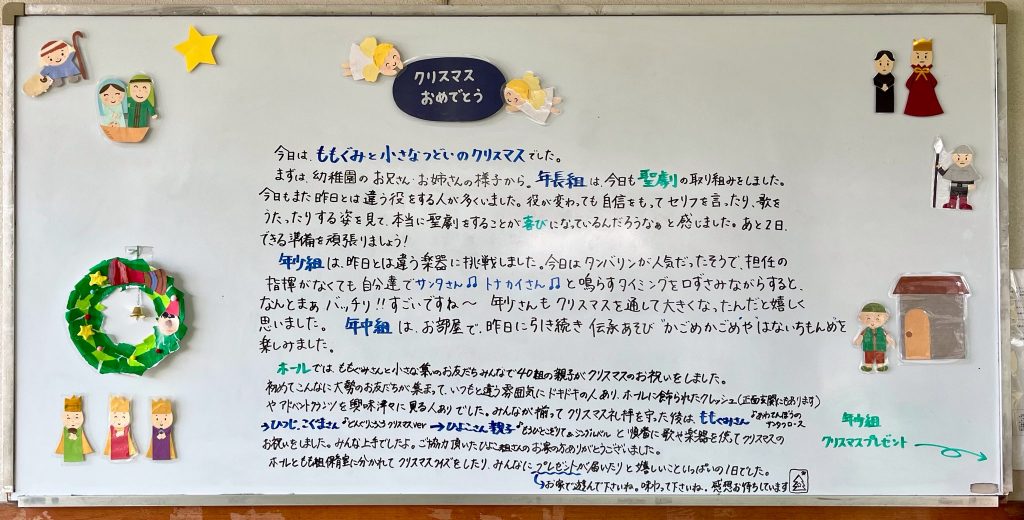 クリスマス
おめでとう
今日は、ももぐみと小さなつどいのクリスマスでした。
まずは、幼稚園のお兄さん・お姉さんの様子から。年長組は、今日も聖劇の取り組みをしました。
今日もまた昨日とは違う役をする人が多くいました。役が変わっても自信をもってセリフを言ったり、歌を
うたったりする姿を見て、本当に聖劇をすることが喜びになっているんだろうなぁと感じました。あと2日、
できる準備を頑張りましょう!
年少組は、昨日とは違う楽器に挑戦しました。今日はタンバリンが人気だったそうで、担任の
指揮がなくても自分達でサンタさん♫トナカイさん♫と鳴らすタイミングを口ずさみながらすると、
なんとまぁバッチリ!!すごいですね〜 年少さんもクリスマスを通して大きくなったんだと嬉しく
思いました。年中組は、お部屋で、昨日に引き続き伝承あそび"かごめかごめ"や"はないちもんめ"を
楽しみました。
ホールでは、ももぐみさんと小さな葉のお友だちみんなで40組の親子がクリスマスのお祝いをしました。
初めてこんなに大勢のお友だちが集まって、いつもと違う雰囲気にドキドキの人あり、ホールに飾られたクレッシュ(正面玄関にもあります)
やアドベントクランツを興味津々に見る人ありでした。みんなが揃ってクリスマス礼拝を守った後は、ももぐみさん♪あわてんぼうの
サンタクロース
→ひつじ、こぐまさん♪とんとんとんとん クリスマスver→ひよこさん親子 と順番に歌や楽器を使ってクリスマスの
お祝いをしました。みんな上手でしたよ。ご協力頂いたひよこ組さんのお家の方ありがとうございました。
ホールともも組保育室に分かれてクリスマスクイズをしたり、みんなにプレゼントが届いたりと嬉しいこといっぱいの1日でした。
→お家で遊んで下さいね。味わって下さいね。感想お待ちしています
年少組
クリスマスプレゼント